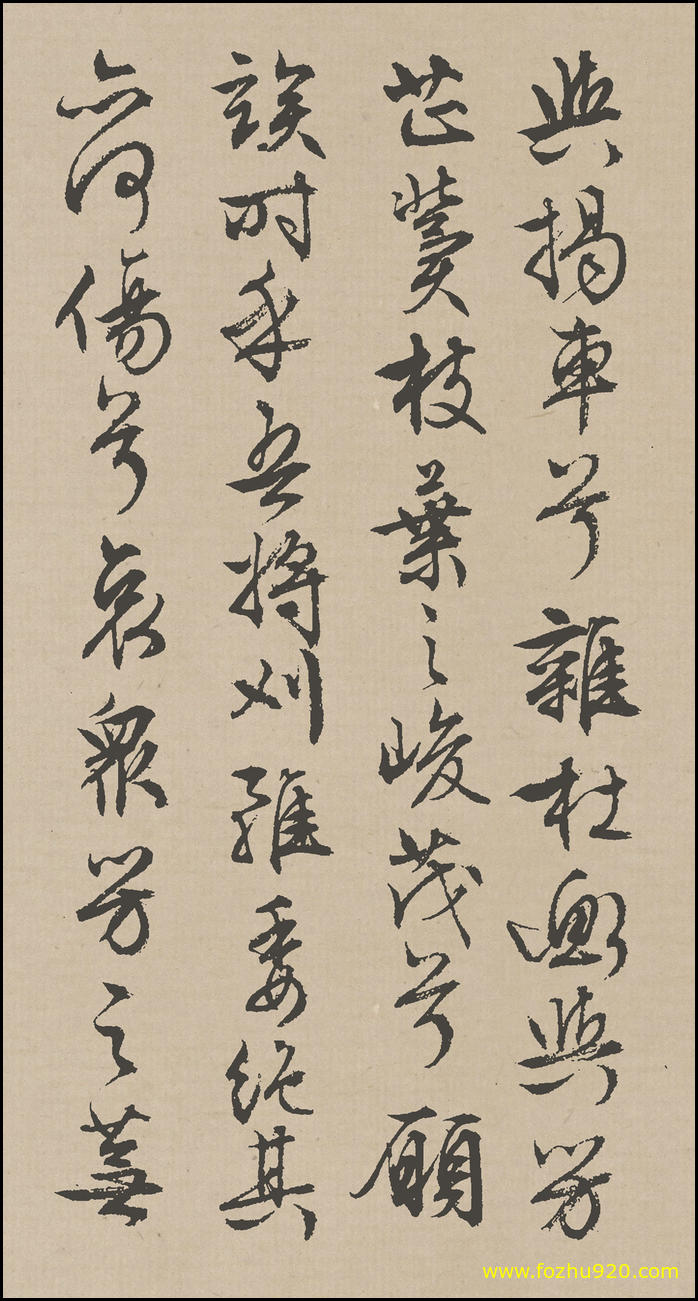 與揭車兮雜杜衡與芳
芷蓂枝葉之峻茂兮願
竢时乎吾將刈雖委絕其
亦何傷兮哀眾芳之蕪
www.fozhu920.com